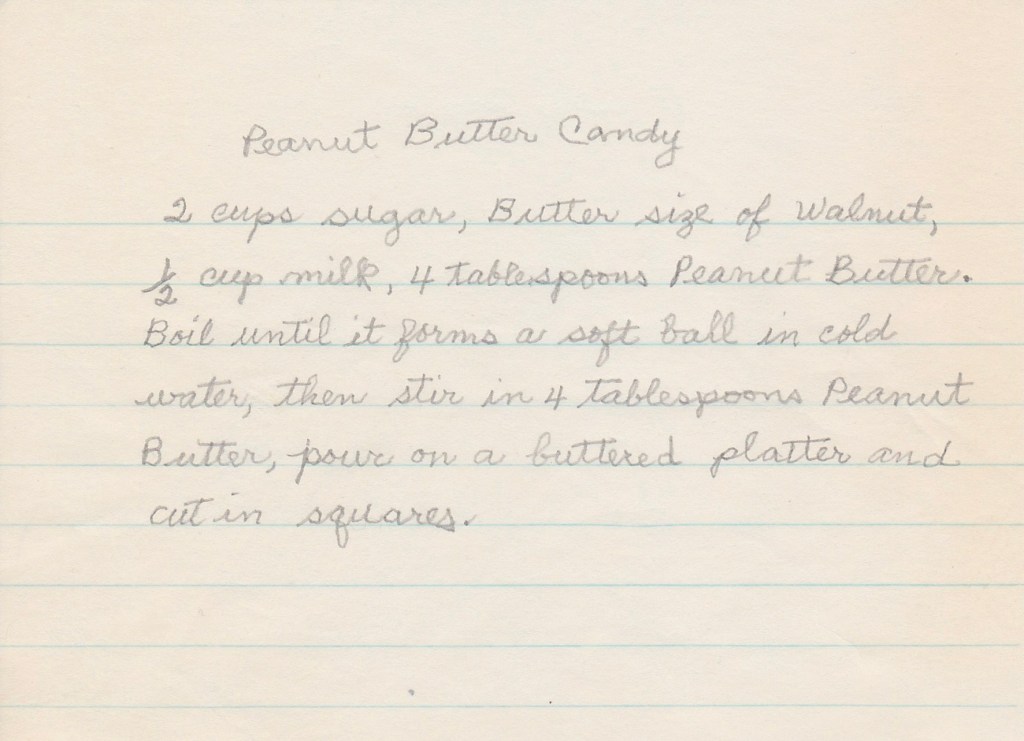 Peanut Butter Candy
2 cups sugar, Butter size of Walnut,
1/2 cup milk, 4 tablespoons Peanut Butter.
Boil until it forms a soft ball in cold
water, then stir in 4 tablespoons Peanut
Butter, pour on a buttered platter and
cut in squares.